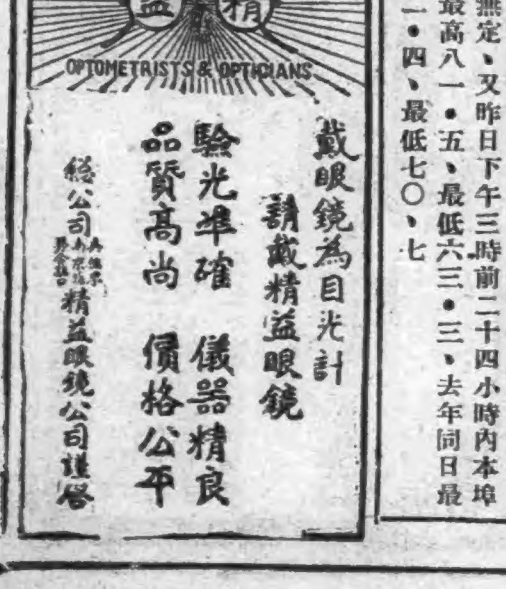 無定、又昨日下午三時前二十四小時內本埠
最高八一•五、最低六三•三、去年同日最
•四、最低七〇、七
精益
OPTOMETRISTS & OPTICIANS
戴眼鏡為目光計
請戴精益眼鏡
驗光準確 儀器精良
品質高尚 價格公平
總公司
精益眼鏡公司謹啓